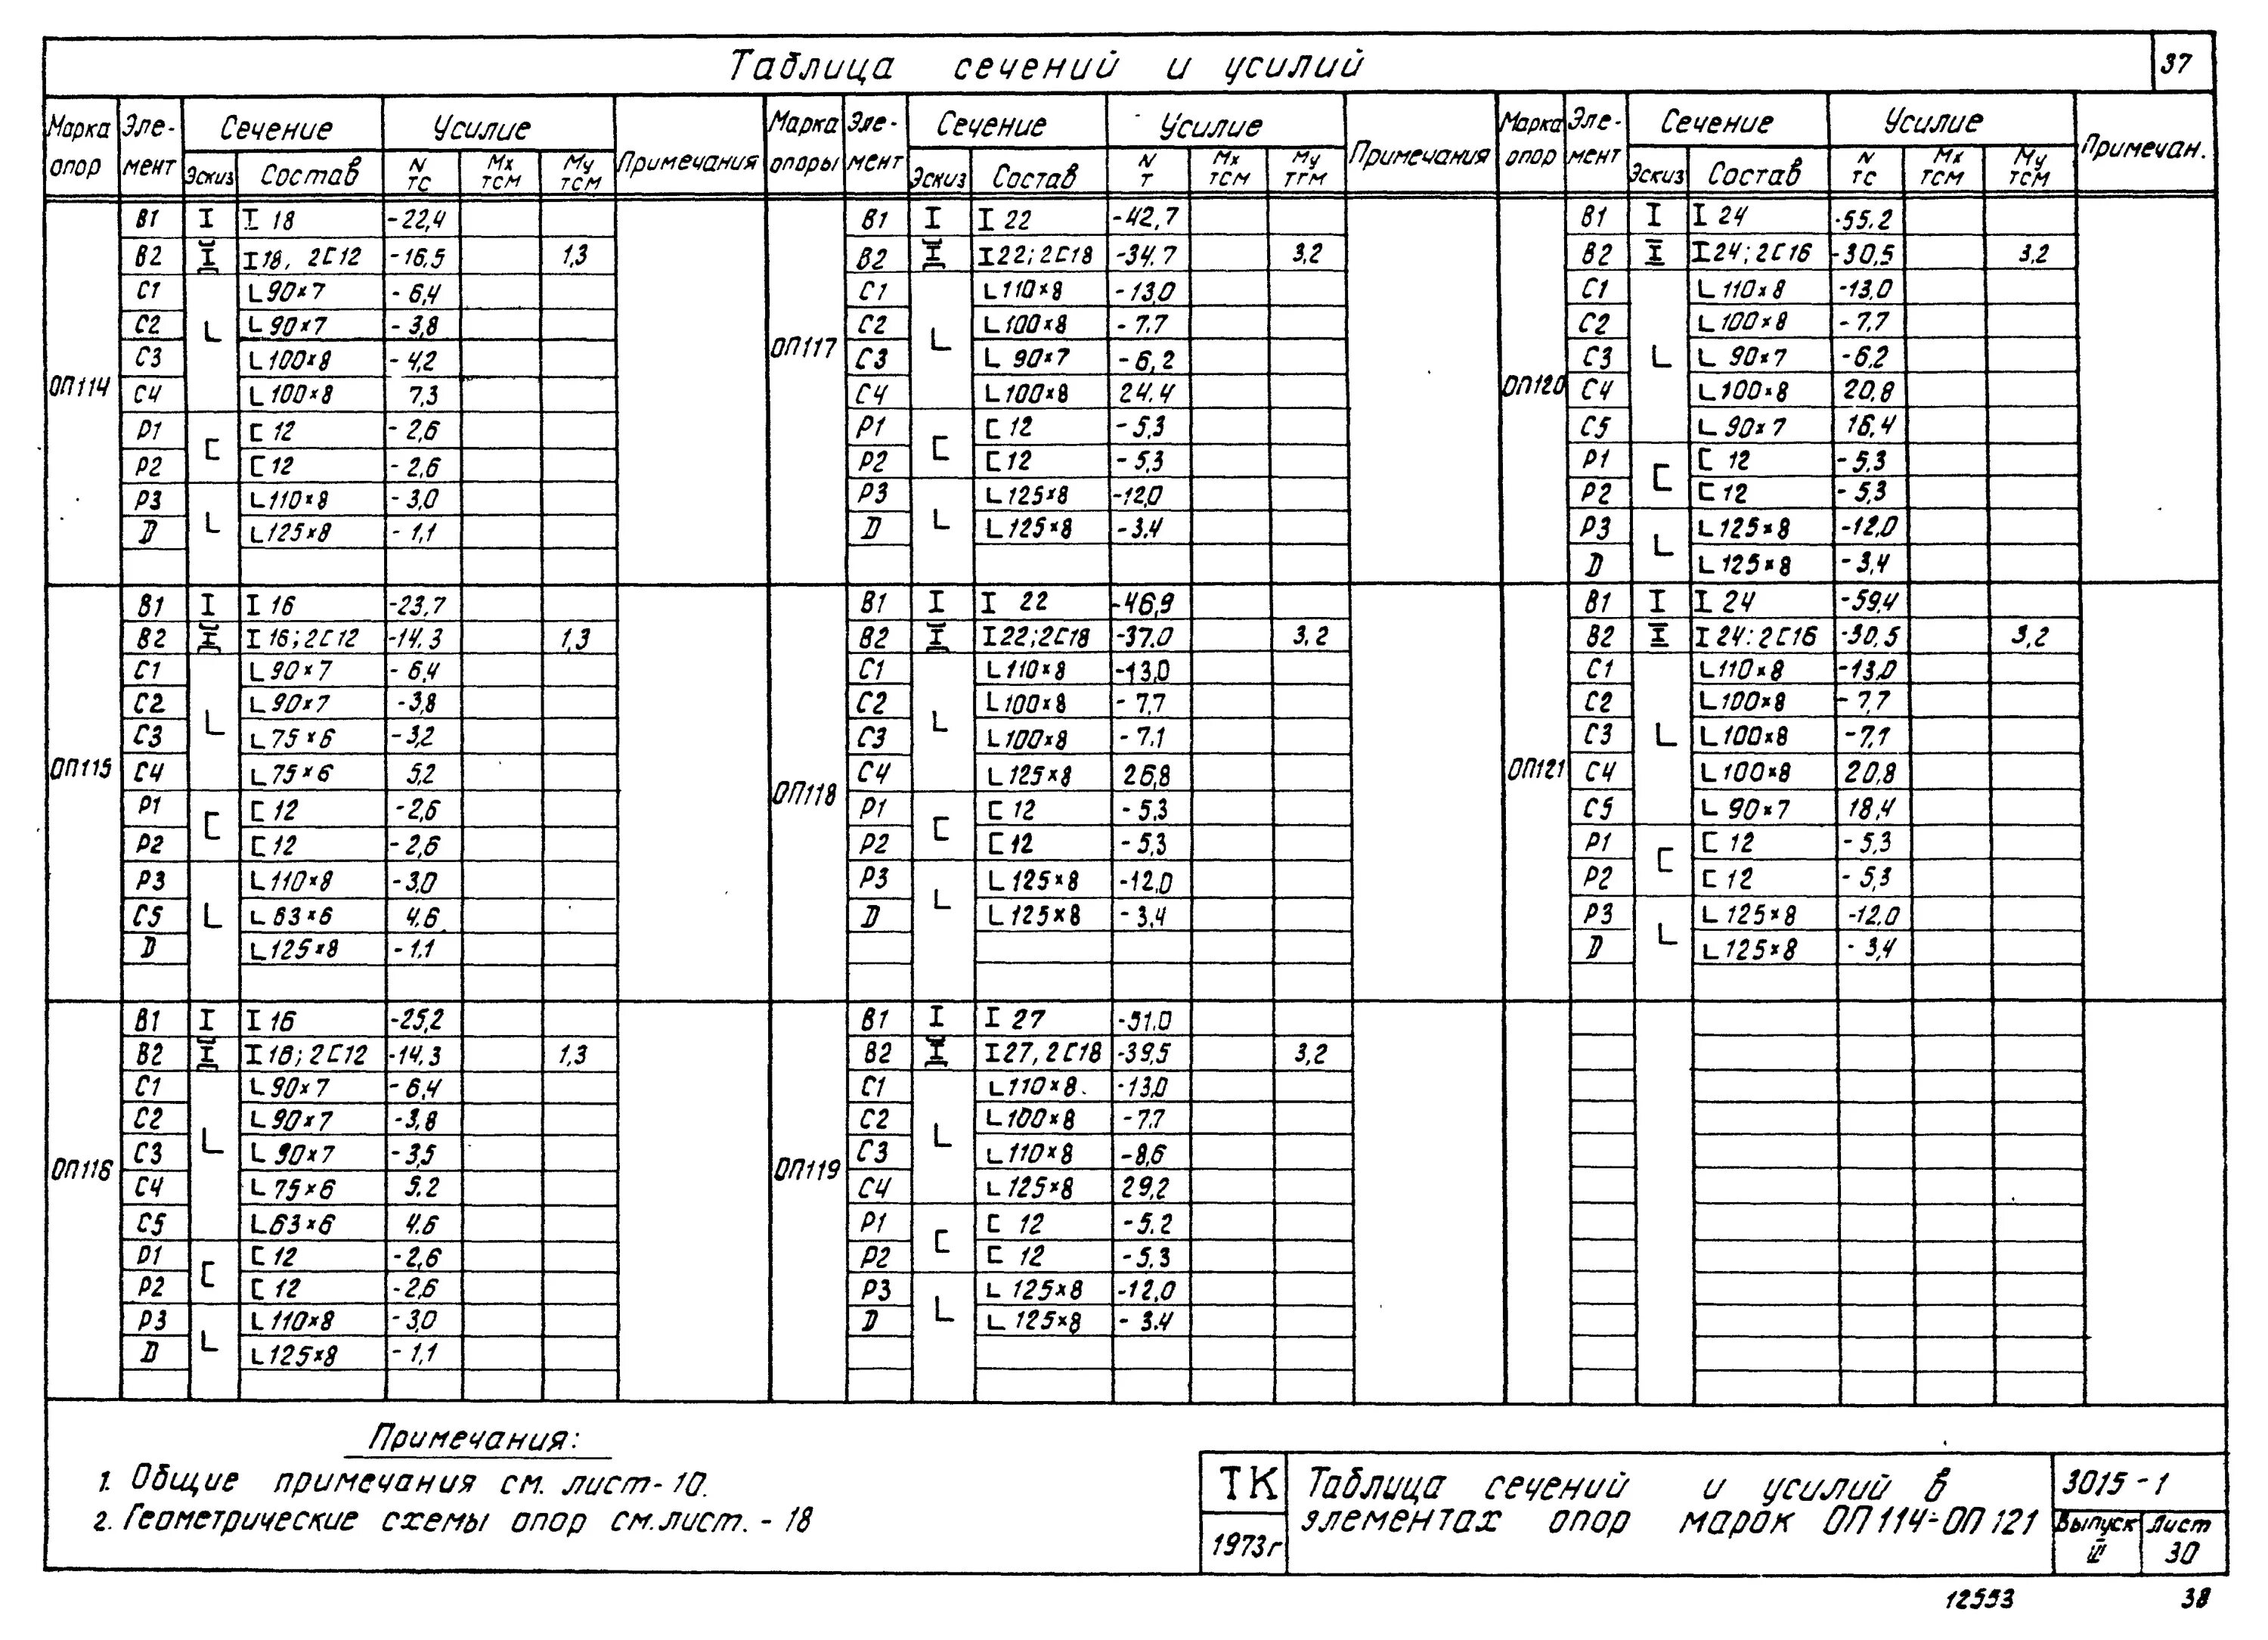 Таблица сечений и усилий
37
Марка опор Эле-мент Сечение Усилие Примечания
Эскиз Состав N тс Мх тсм Му тсм
ОП114
В1 I I 18 -22,4
В2 I I18, 2[12 -16,5 1,3
С1 L90×7 -6,4
С2 L90×7 -3,8
С3 L100×8 -4,2
С4 L100×8 7,3
Р1 [12 -2,6
Р2 [12 -2,6
Р3 L110×8 -3,0
D L125×8 -1,1
ОП115
В1 I I 16 -23,7
В2 I I 16; 2[12 -14.3 1,3
С1 L90×7 -6,4
С2 L90×7 -3,8
С3 L75×6 -3,2
С4 L75×6 5,2
Р1 [12 -2,6
Р2 [12 -2,6
Р3 L110×8 -3,0
С5 L63×6 4.6
D L125×8 -1.1
ОП116
В1 I I 16 -25,2
В2 I I 16; 2[12 -14,3 1,3
С1 L90×7 -6,4
С2 L90×7 -3,8
С3 L90×7 -3,5
С4 L75×6 5.2
С5 L63×6 4.6
Р1 [12 -2,6
Р2 [12 -2,6
Р3 L110×8 -3,0
D L125×8 -1,1
Марка опоры Эле-мент Сечение Усилие Примечания
Эскиз Состав N т Мх тсм Му тгм
ОП117
В1 I I 22 -42,7
В2 I I22; 2[18 -34.7 3,2
С1 L110×8 -13,0
С2 L100×8 -7.7
С3 L 90×7 -6,2
С4 L100×8 24.4
Р1 [12 -5.3
Р2 [12 -5,3
Р3 L125×8 -12,0
D L125×8 -3.4
ОП118
В1 I I 22 -46,9
В2 I I22; 2[18 -37.0 3,2
С1 L110×8 -13,0
С2 L100×8 -7,7
С3 L100×8 -7.1
С4 L125×8 26,8
Р1 [12 -5,3
Р2 [12 -5,3
Р3 L125×8 -12,0
D L125×8 -3,4
ОП119
В1 I I 27 -51.0
В2 I I27, 2[18 -39,5 3,2
С1 L110×8. -13,0
С2 L100×8 -7.7
С3 L110×8 -8,6
С4 L125×8 29,2
Р1 [ 12 -5.2
Р2 [ 12 -5,3
Р3 L 125×8 -12,0
D L 125×8 -3.4
Марка опор Эле-мент Сечение Усилие Примечан.
Эскиз Состав N тс Мх тсм Му тсм
ОП120
В1 I I 24 -55.2
В2 I I24; 2[16 -30,5 3,2
С1 L110×8 -13,0
С2 L100×8 -7,7
С3 L 90×7 -6,2
С4 L100×8 20,8
С5 L 90×7 16,4
Р1 [ 12 -5,3
Р2 [ 12 -5,3
Р3 L125×8 -12,0
D L125×8 -3,4
ОП121
В1 I I 24 -59,4
В2 I I 24: 2[16 -30,5 3,2
С1 L110×8 -13,0
С2 L100×8 -7,7
С3 L100×8 -7,1
С4 L100×8 20,8
С5 L 90×7 18,4
Р1 [ 12 -5,3
Р2 [ 12 -5,3
Р3 L125×8 -12,0
D L125×8 -3,4
Примечания:
1. Общие примечания см. лист-10.
2. Геометрические схемы опор см. лист. - 18
ТК
1973г
Таблица сечений и усилий в
элементах опор марок ОП114÷ОП121
3015-1
Выпуск III
Лист 30
12553
38